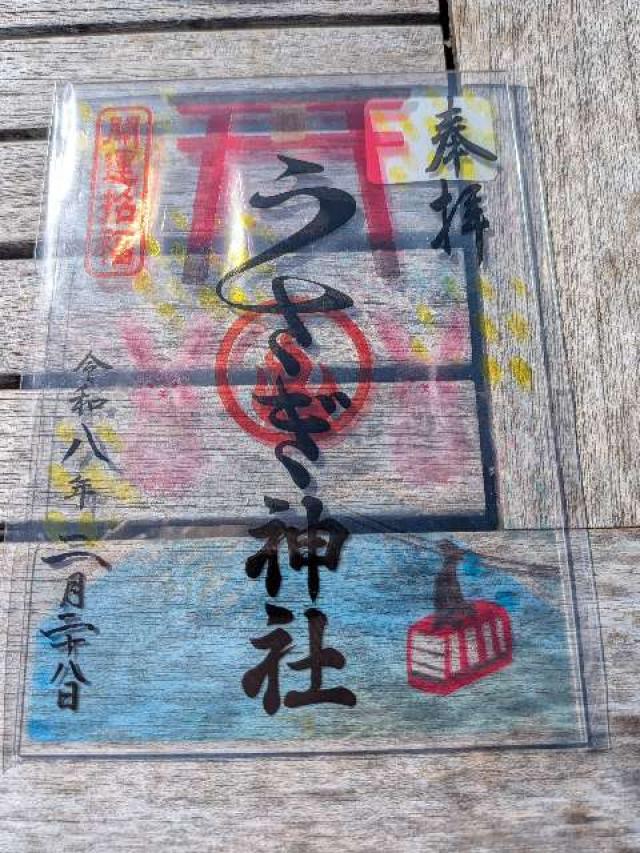 奉拝
うさぎ神社
開運招福
令和八年二月二十八日